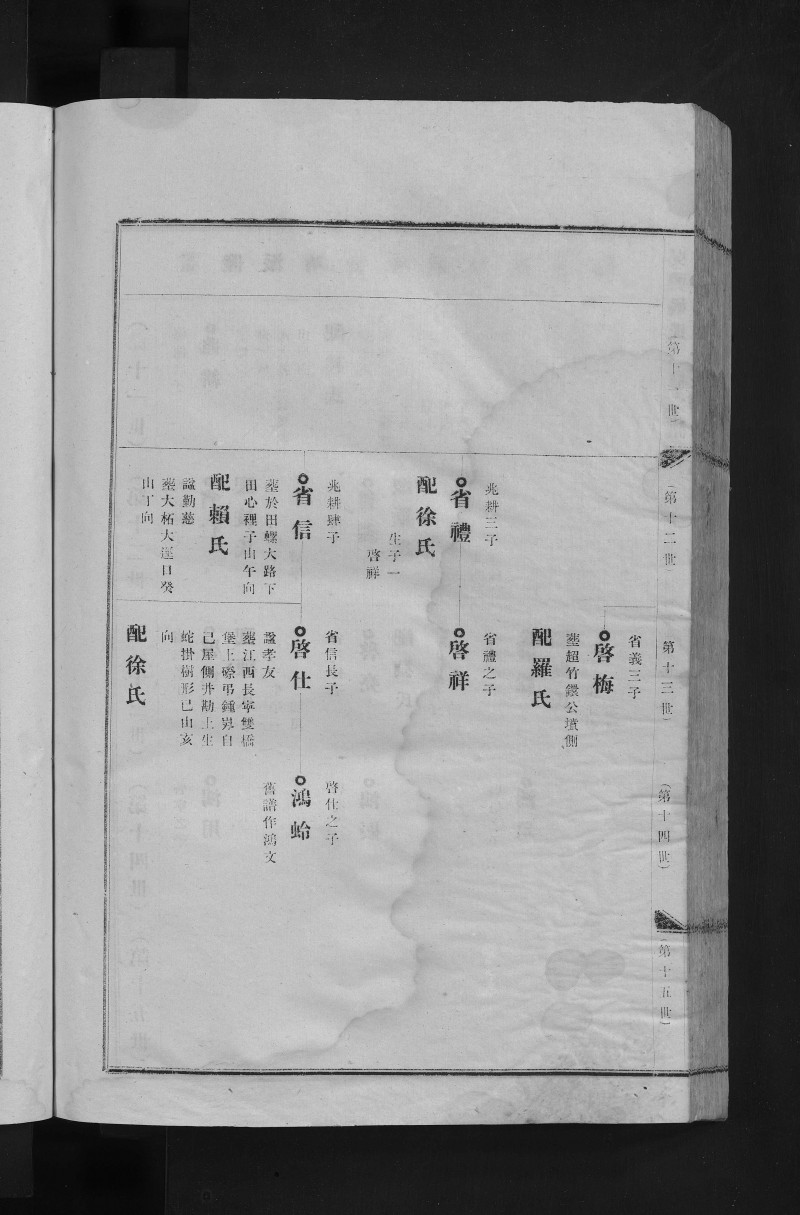 (第十一世)
(第十二世)
兆耕三子
省禮
配徐氏
生子一
啓祥
兆耕肆子
省信
塟於田螺大路下
田心裡子山午向
配賴氏
諡勤慈
塟大柘大逕口癸
山丁向
(第十三世)
省義三子
啓梅
塟超竹鐶公墳側
配羅氏
省禮之子
啓祥
省信長子
啓仕
諡孝友
塟江西長寧雙橋
堡上磜弔鍾嶴自
己屋側井勘上生
蛇掛樹形巳山亥
向
配徐氏
(第十四世)
啓仕之子
鴻蛉
舊譜作鴻文
(第十五世)